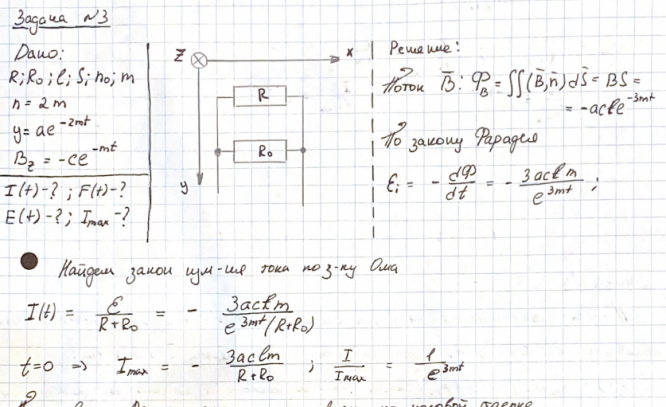 Задача №3
Дано:
R; R₀; l; S; n₀; m
n = 2m
y = ae^{-2mt}
B_z = -ce^{-mt}
I(t)-? ; F(t)-?
E(t)-? ; I_max-?
Z x
R
R₀
y
Решение:
Поток B̄: Φ_B = ∬(B̄, n̄) dS̄ = BS =
= -acle^{-3mt}
По закону Фарадея
ε_i = - dΦ/dt = - 3aclm/e^{3mt} ;
Найдем закон изм-ия тока по з-ну Ома
I(t) = ε/(R+R₀) = - 3aclm/(e^{3mt}(R+R₀))
t=0 => I_max = - 3aclm/(R+R₀) ; I/I_max = 1/e^{3mt}